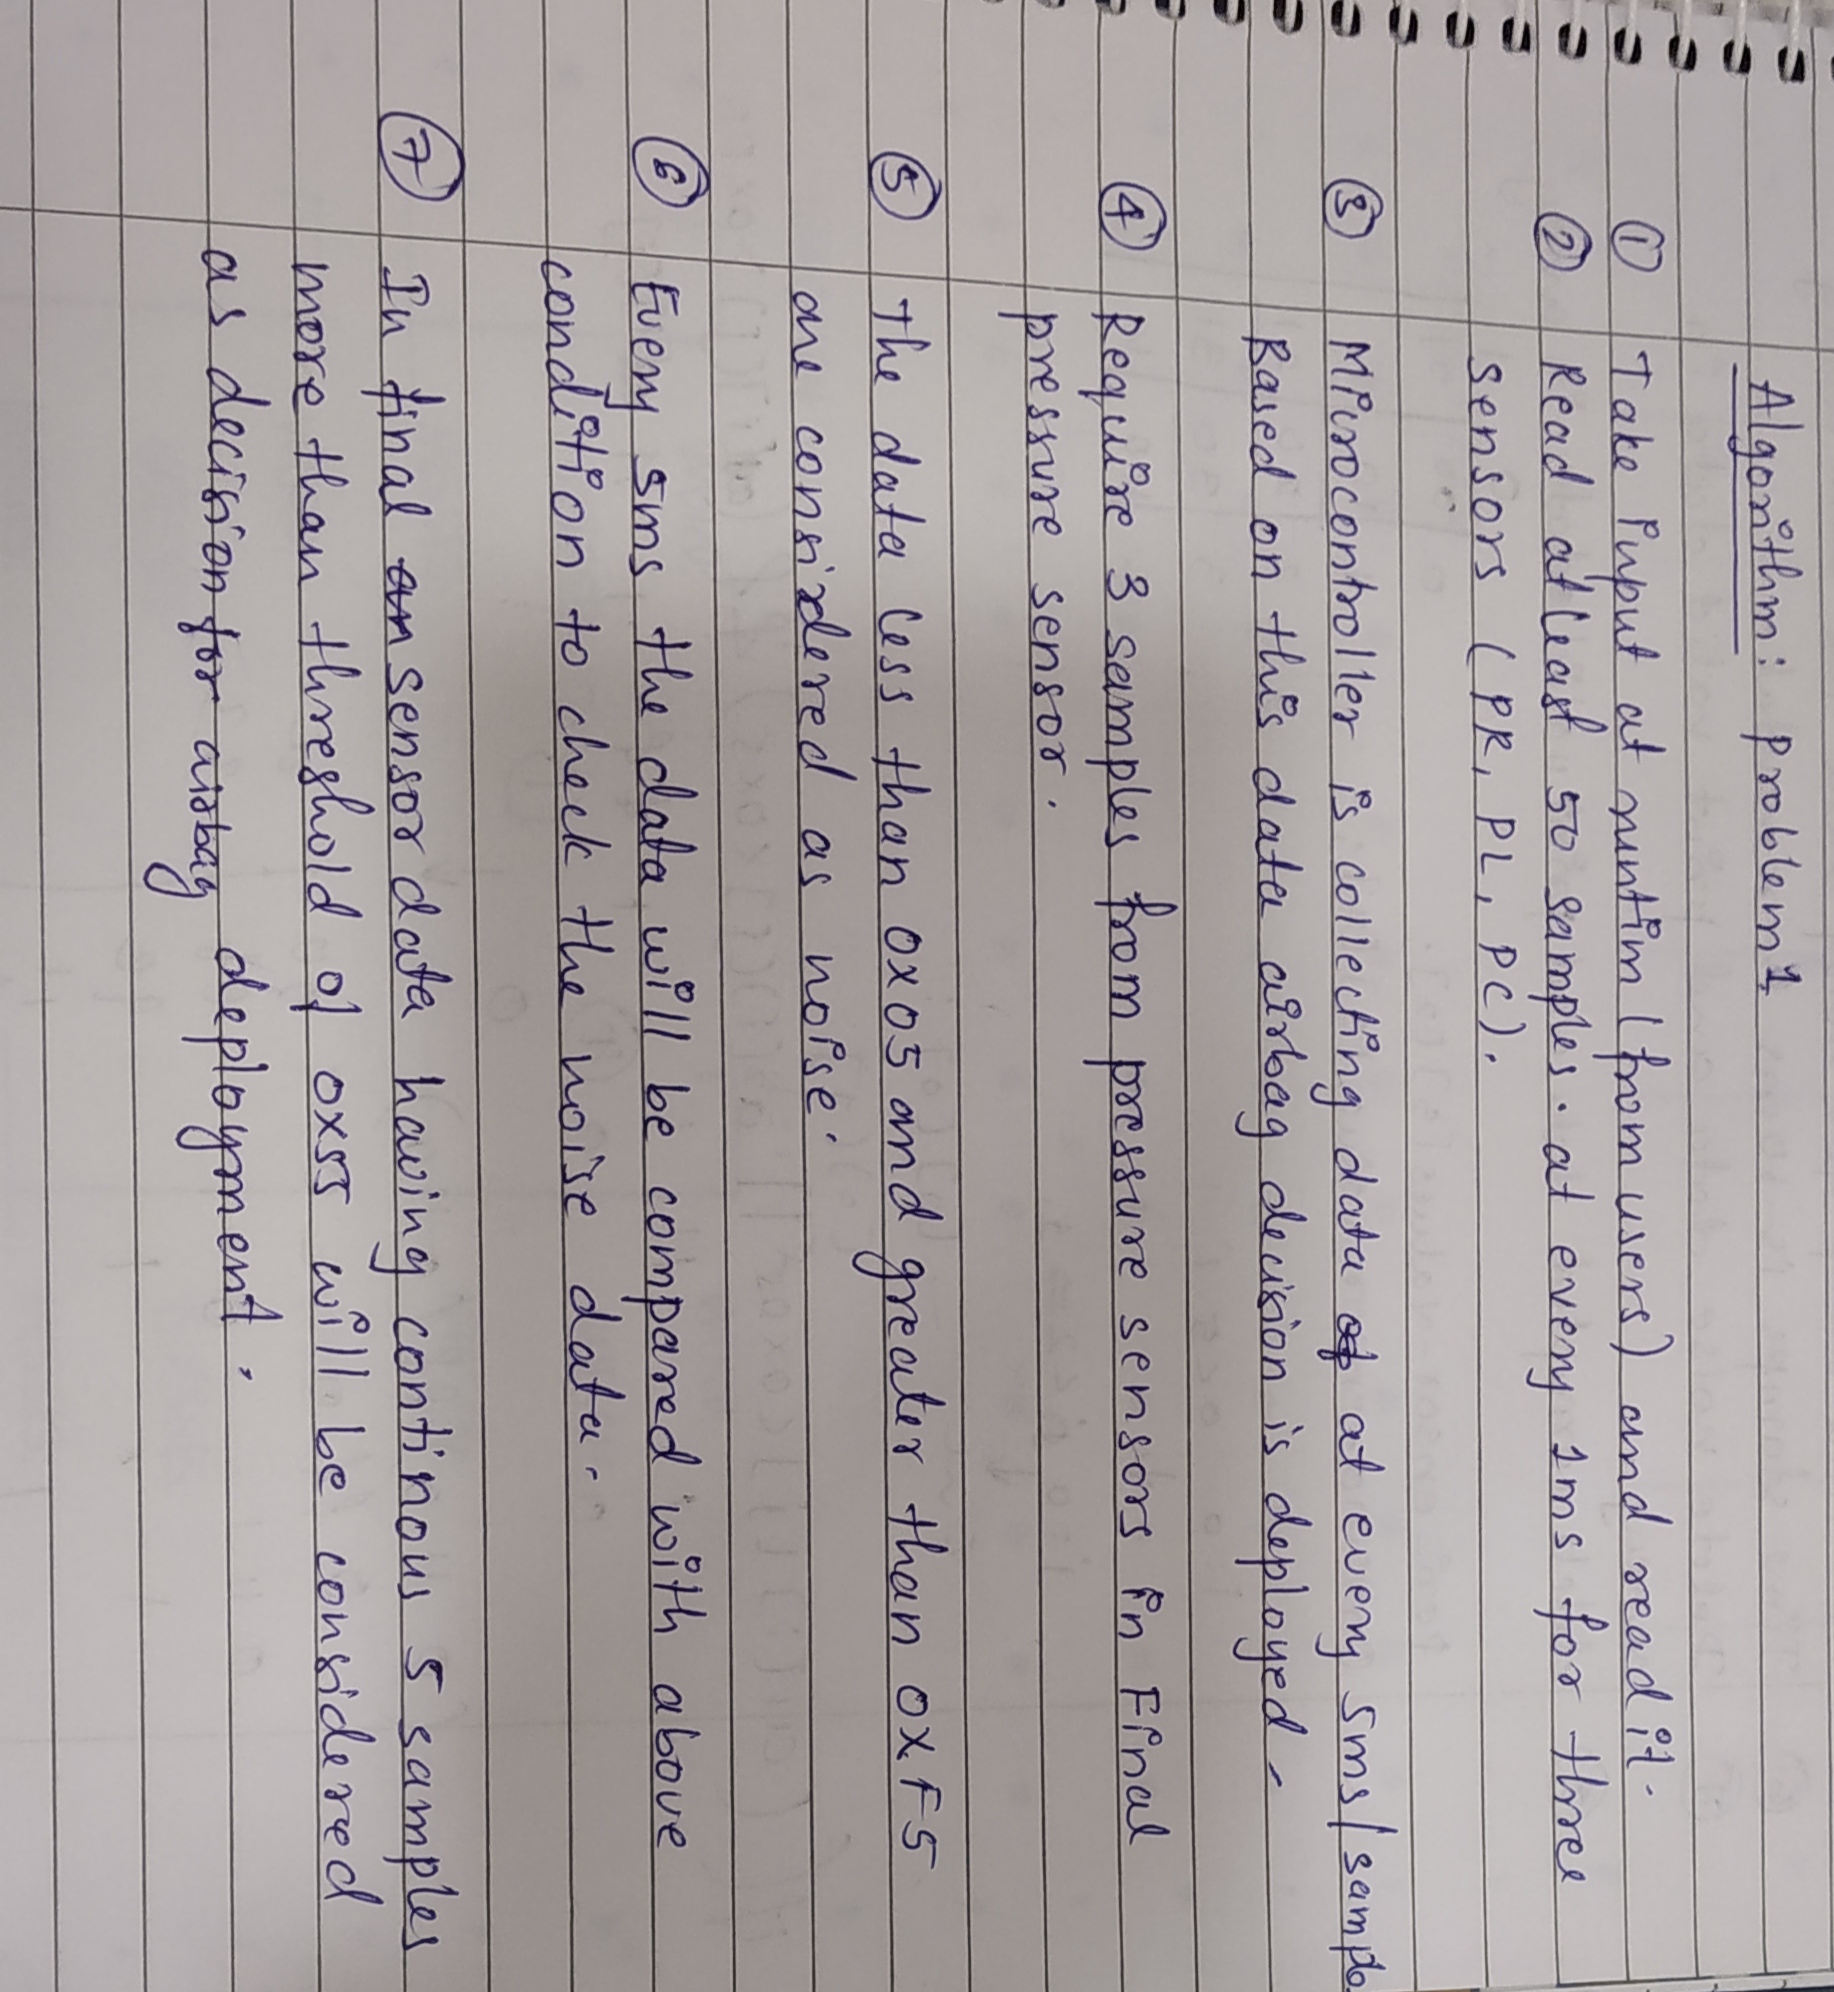 Algorithm: problem 1
① Take input at runtim (from users) and read it.
② Read atleast 50 samples. at every 1ms for three
sensors (PR, PL, PC).
③ Microcontroller is collecting data of at every 5ms/sample
Based on this data airbag decision is deployed.
④ Require 3 samples from pressure sensors in Final
pressure sensor.
⑤ The data less than 0x05 and greater than 0xF5
are considered as noise.
⑥ Every 5ms the data will be compared with above
condition to check the noise data.
⑦ In final an sensor data having continous 5 samples
more than threshold of 0x55 will be considered
as decision for airbag deployment.